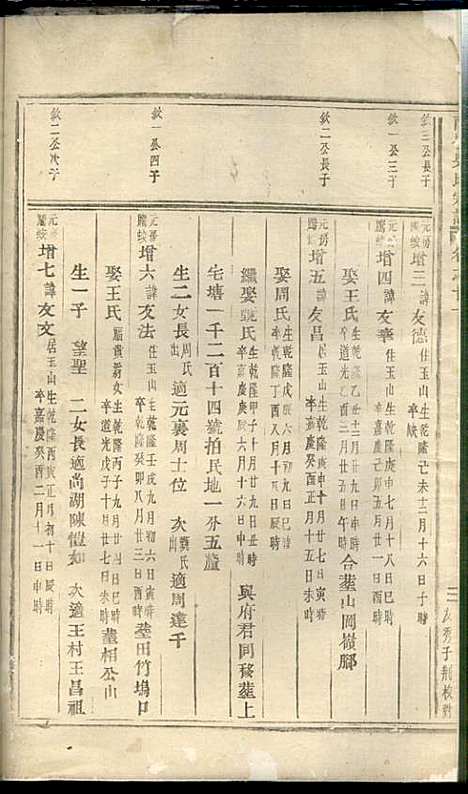 欽三公長子
元房騰竣增三諱友德住玉山生乾隆己未十二月十六日子時卒缺
欽一公三子
元房騰竣增四諱友華住玉山生乾隆庚申七月十八日巳時卒嘉慶乙酉三月廿一日申時
娶王氏生乾隆乙丑十二月廿二日亥時卒道光乙酉三月廿五日午時合塟山岡嶺腳
欽二公長子
元房騰竣增五諱友昌居玉山生乾隆庚申九月十五日寅時卒嘉慶癸酉十月十五日未時
娶周氏生乾隆戊寅六月初九日巳時卒乾隆丁酉八月十一日辰時
繼娶張氏生乾隆甲子十月廿九日丑時卒嘉慶庚辰十月廿六日申時與府君同移塟上
宅塘一千二百十四號拍民地一分五釐
生二女長周氏出適元襄周士位次出適周達千
欽一公四子
元房騰竣增六諱友法住玉山生乾隆壬戌九月初六日寅時卒乾隆癸卯八月廿三日寅時塟田竹塢口
娶王氏生乾隆丙子九月廿四日巳時卒道光戊子十月廿七日未時塟相公山
生一子望聖二女長適尚湖陳愷如次適王村王昌祖
欽二公次子
元房騰竣增七諱友文居玉山生乾隆酉寅正月初十日辰時卒嘉慶癸酉二月十一日申時